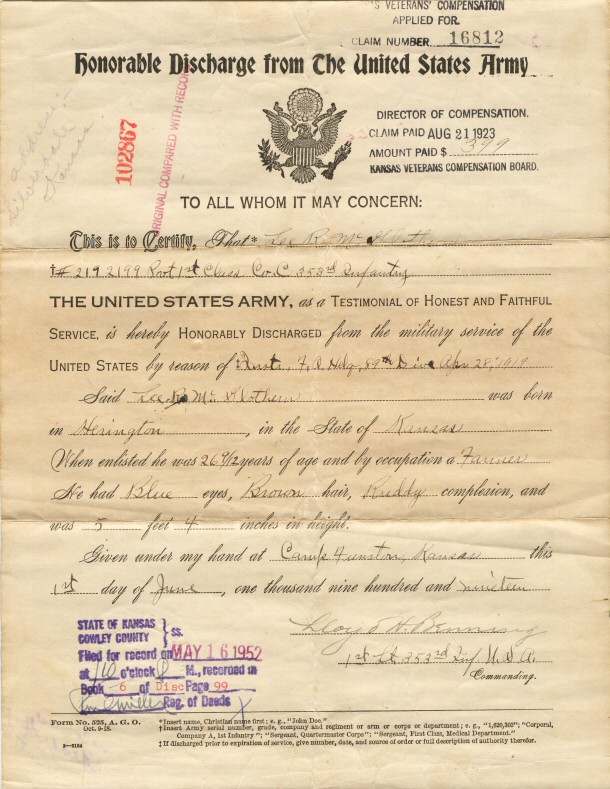 'S VETERANS' COMPENSATION
APPLIED FOR.
CLAIM NUMBER 16812
Honorable Discharge from The United States Army
102867
ORIGINAL COMPARED WITH RECORD
DIRECTOR OF COMPENSATION.
CLAIM PAID AUG 21 1923
AMOUNT PAID $ 399
KANSAS VETERANS COMPENSATION BOARD.
TO ALL WHOM IT MAY CONCERN:
This is to Certify, That* Lee R. Mc
†# 2192199 1st Class Co. C. 353rd Infantry
THE UNITED STATES ARMY, as a TESTIMONIAL OF HONEST AND FAITHFUL
SERVICE, is hereby HONORABLY DISCHARGED from the military service of the
UNITED STATES by reason of ‡ Hdq. 89th Div. Apr 28, 1919
Said Lee R. Mc was born
in Herington, in the State of Kansas
When enlisted he was 26 years of age and by occupation a Farmer
He had Blue eyes, Brown hair, Ruddy complexion, and
was 5 feet 4 inches in height.
Given under my hand at Camp Funston, Kansas this
1st day of June, one thousand nine hundred and nineteen
Lloyd H. Benning
1st Lt 353rd Inf U.S.A.
Commanding.
STATE OF KANSAS
COWLEY COUNTY } SS.
Filed for record on MAY 16 1952
at o'clock M., recorded in
Book 6 of Disc Page 99
Reg. of Deeds
Form No. 525, A. G. O.
Oct. 9-18.
*Insert name, Christian name first; e. g., "John Doe."
†Insert Army serial number, grade, company and regiment or arm or corps or department; e. g., "1,620,302"; "Corporal,
Company A, 1st Infantry"; "Sergeant, Quartermaster Corps"; "Sergeant, First Class, Medical Department."
‡If discharged prior to expiration of service, give number, date, and source of order or full description of authority therefor.